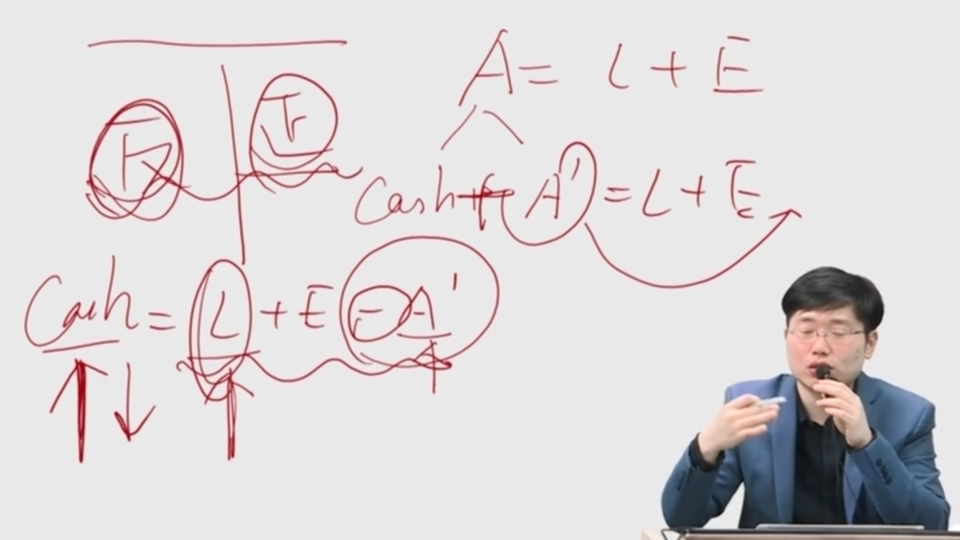 A = L + E
Cash + A' = L + E
Cash = L + E - A'